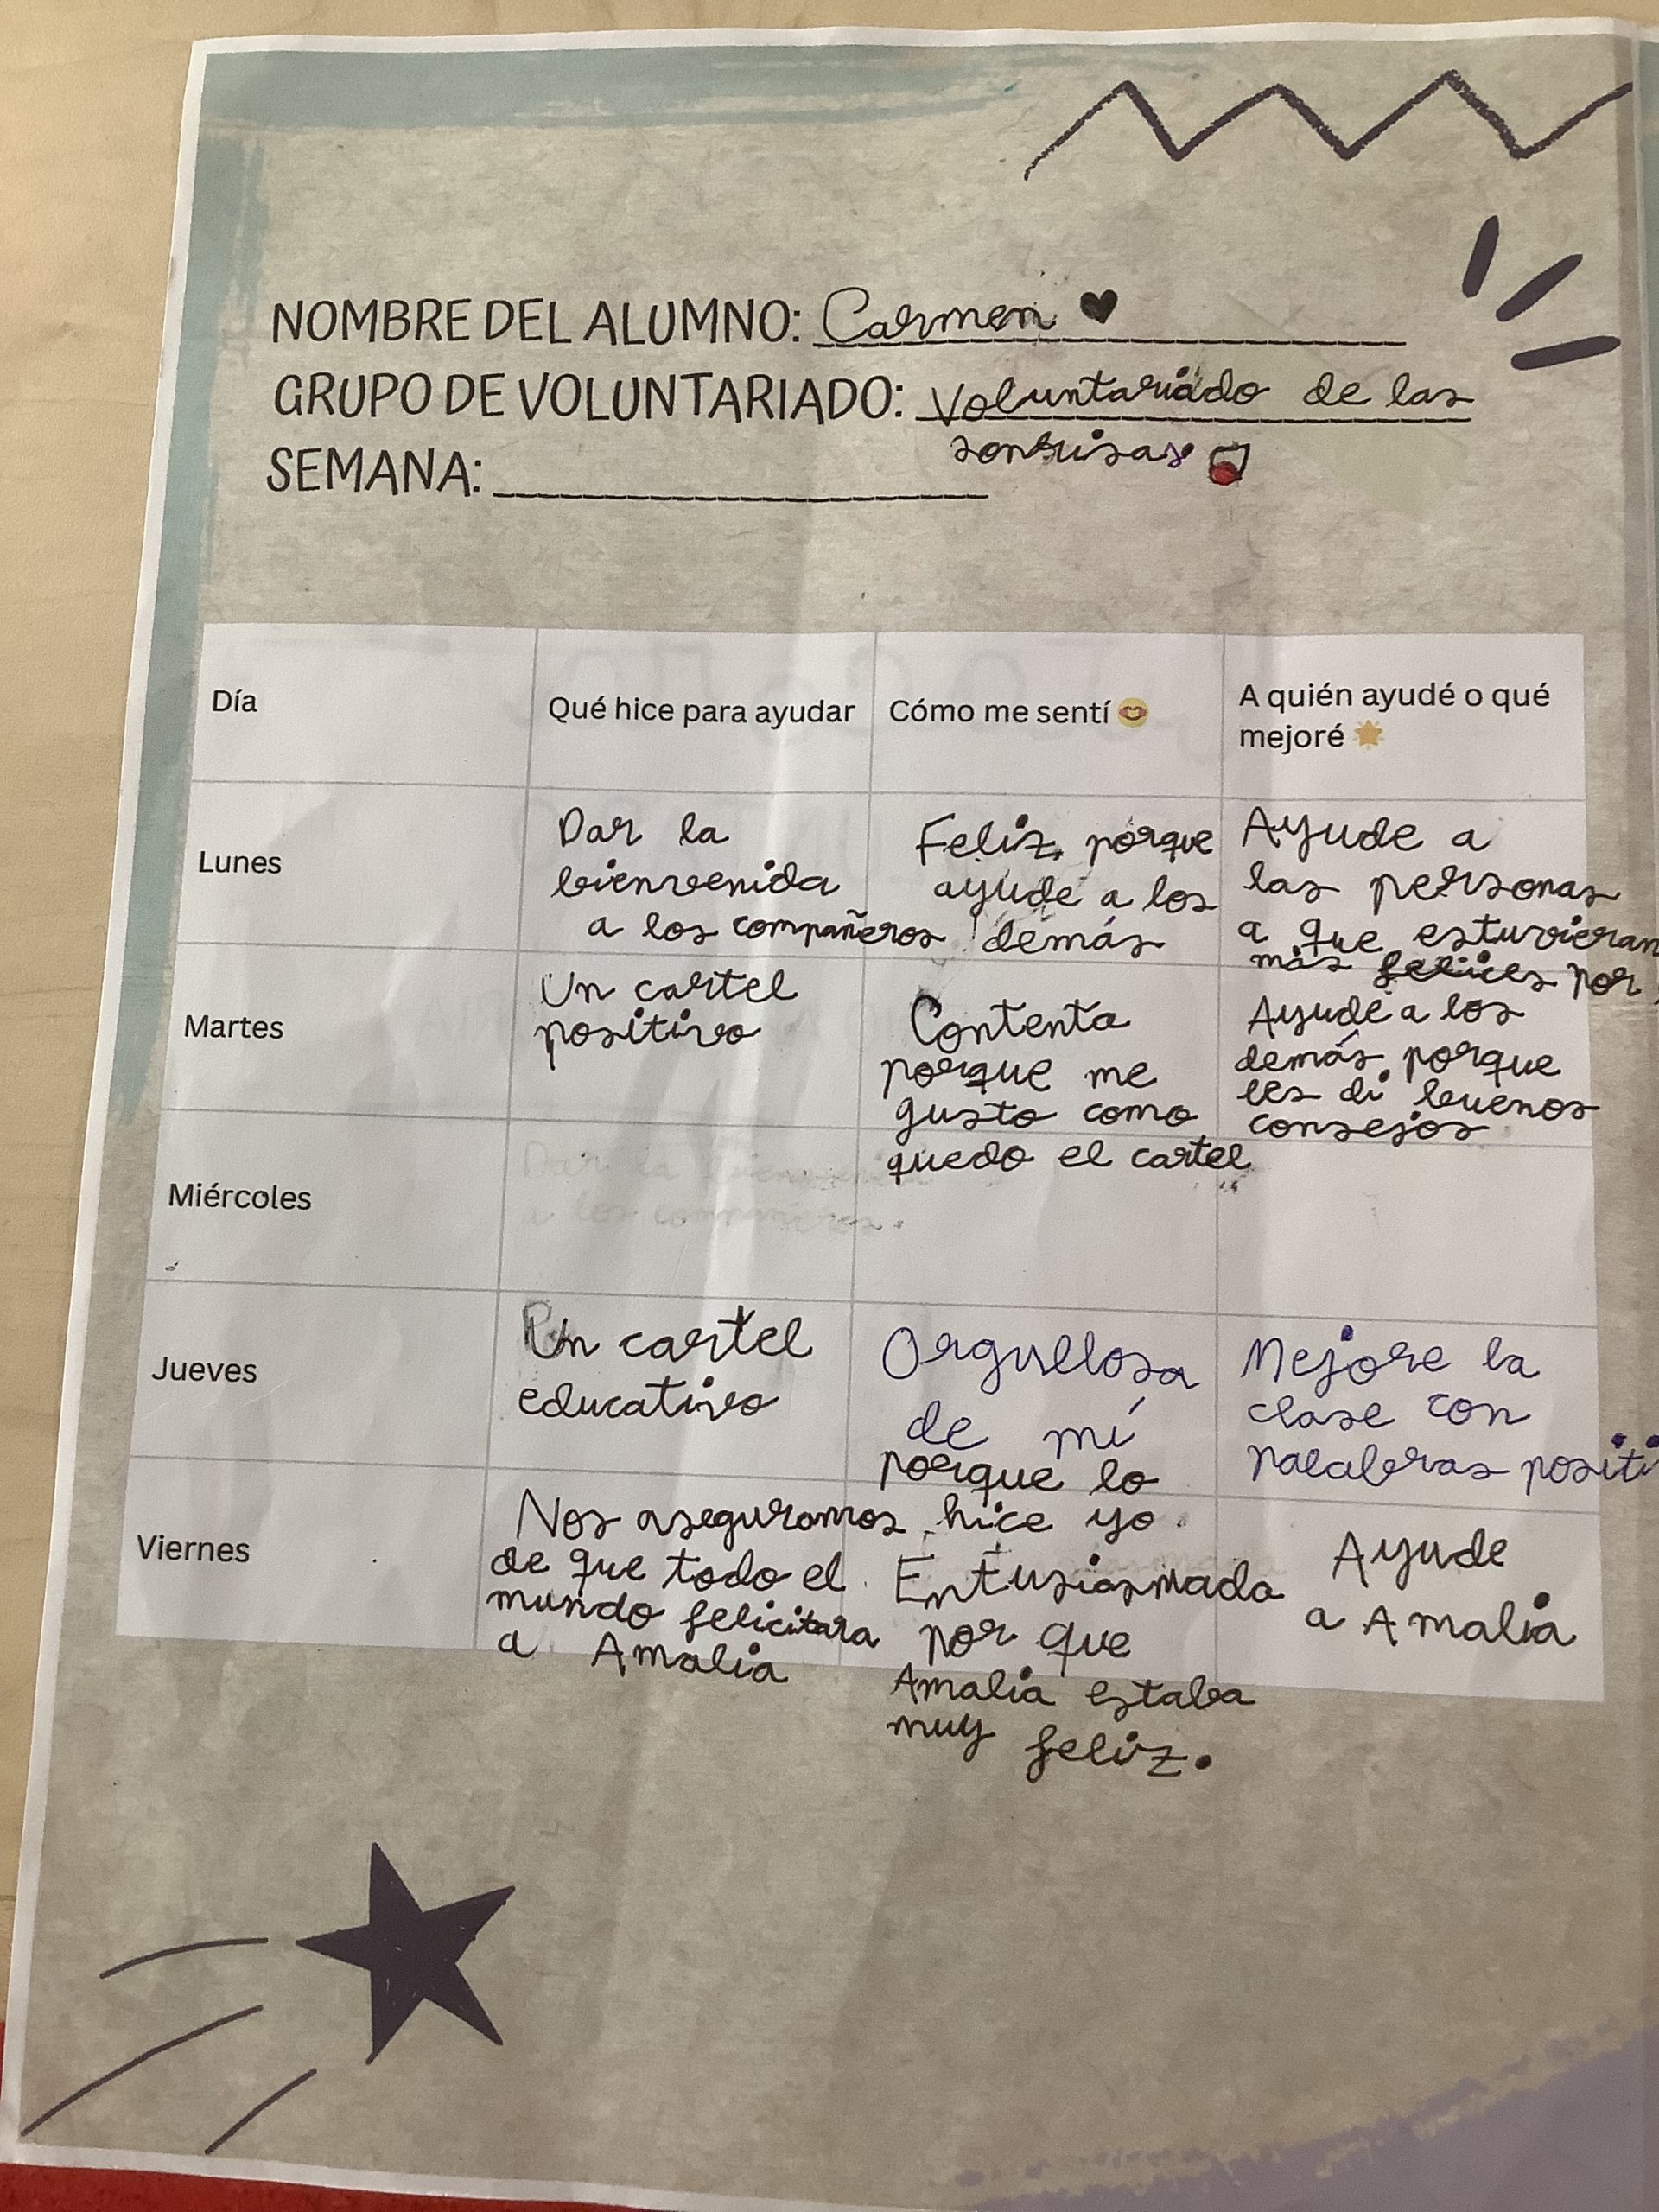 NOMBRE DEL ALUMNO: Carmen
GRUPO DE VOLUNTARIADO: Voluntariado de las
sonrisas
SEMANA:
Día
Qué hice para ayudar
Cómo me sentí
A quién ayudé o qué
mejoré
Lunes
Dar la
bienvenida
a los compañeros
Feliz, porque
ayude a los
demás
Ayude a
las personas
a que estuvieran
más felices por
Martes
Un cartel
positivo
Contenta
porque me
gusto como
quedo el cartel
Ayudé a los
demás porque
les di buenos
consejos
Miércoles
Dar la bienvenida
a los compañeros.
Jueves
Un cartel
educativo
Orgullosa
de mí
porque lo
hice yo
Mejore la
clase con
palabras positi
Viernes
Nos aseguramos
de que todo el
mundo felicitara
a Amalia
Entusiasmada
por que
Amalia estaba
muy feliz.
Ayude
a Amalia